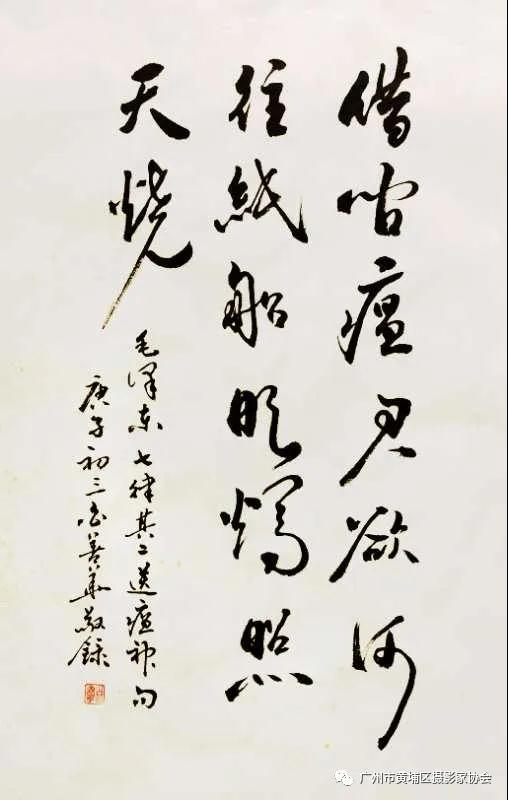 借问瘟君欲何
往纸船明烛照
天烧
毛泽东七律其二送瘟神句
庚子初三 善华敬录
广州市黄埔区摄影家协会